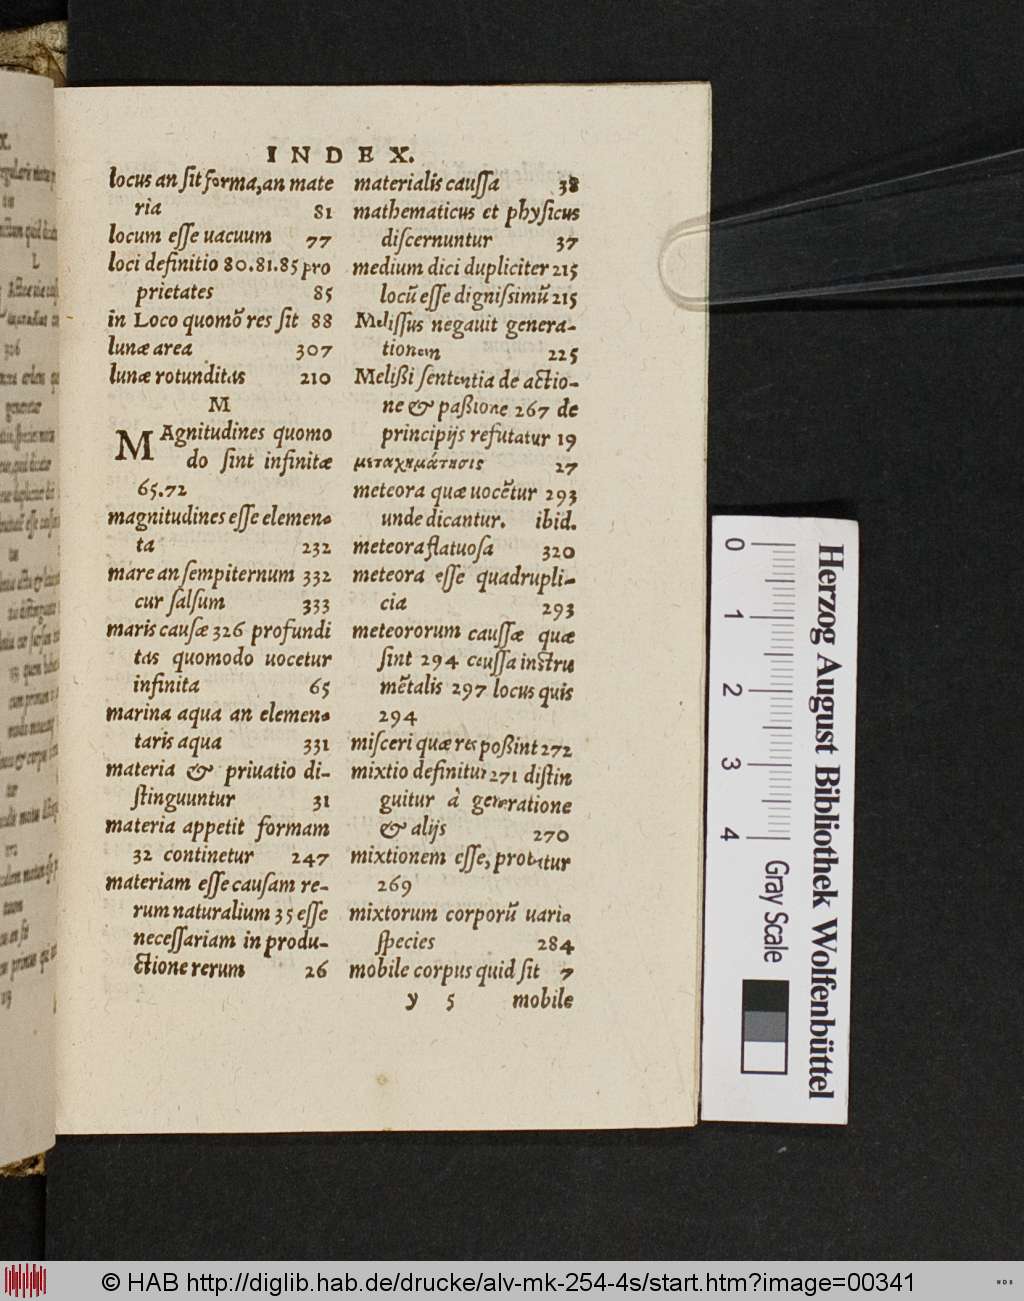 INDEX.
locus an ſit forma, an mate
ria 81
locum eſſe uacuum 77
loci definitio 80.81.85 pro
prietates 85
in Loco quomō res ſit 88
lunæ area 307
lunæ rotunditas 210
M
MAgnitudines quomo
do ſint infinitæ
65.72
magnitudines eſſe elemen-
ta 232
mare an ſempiternum 332
cur ſalſum 333
maris cauſæ 326 profundi
tas quomodo uocetur
infinita 65
marina aqua an elemen-
taris aqua 331
materia & priuatio di-
ſtinguuntur 31
materia appetit formam
32 continetur 247
materiam eſſe cauſam re-
rum naturalium 35 eſſe
neceſſariam in produ-
ctione rerum 26
materialis cauſſa 38
mathematicus et phyſicus
diſcernuntur 37
medium dici dupliciter 215
locū eſſe digniſsimū 215
Meliſſus negauit genera-
tionem 225
Melißi ſententia de actio-
ne & paßione 267 de
principijs refutatur 19
μεταχημάτησις 27
meteora quæ uocētur 293
unde dicantur. ibid.
meteora flatuoſa 320
meteora eſſe quadrupli-
cia 293
meteororum cauſſæ quæ
ſint 294 cauſſa inſtru
mētalis 297 locus quis
294
miſceri quæ res poßint 272
mixtio definitur 271 diſtin
guitur à generatione
& alijs 270
mixtionem eſſe, probatur
269
mixtorum corporū uaria
ſpecies 284
mobile corpus quid ſit 7
y 5 mobile
Herzog August Bibliothek Wolfenbüttel
0 1 2 3 4
Gray Scale
© HAB http://diglib.hab.de/drucke/alv-mk-254-4s/start.htm?image=00341